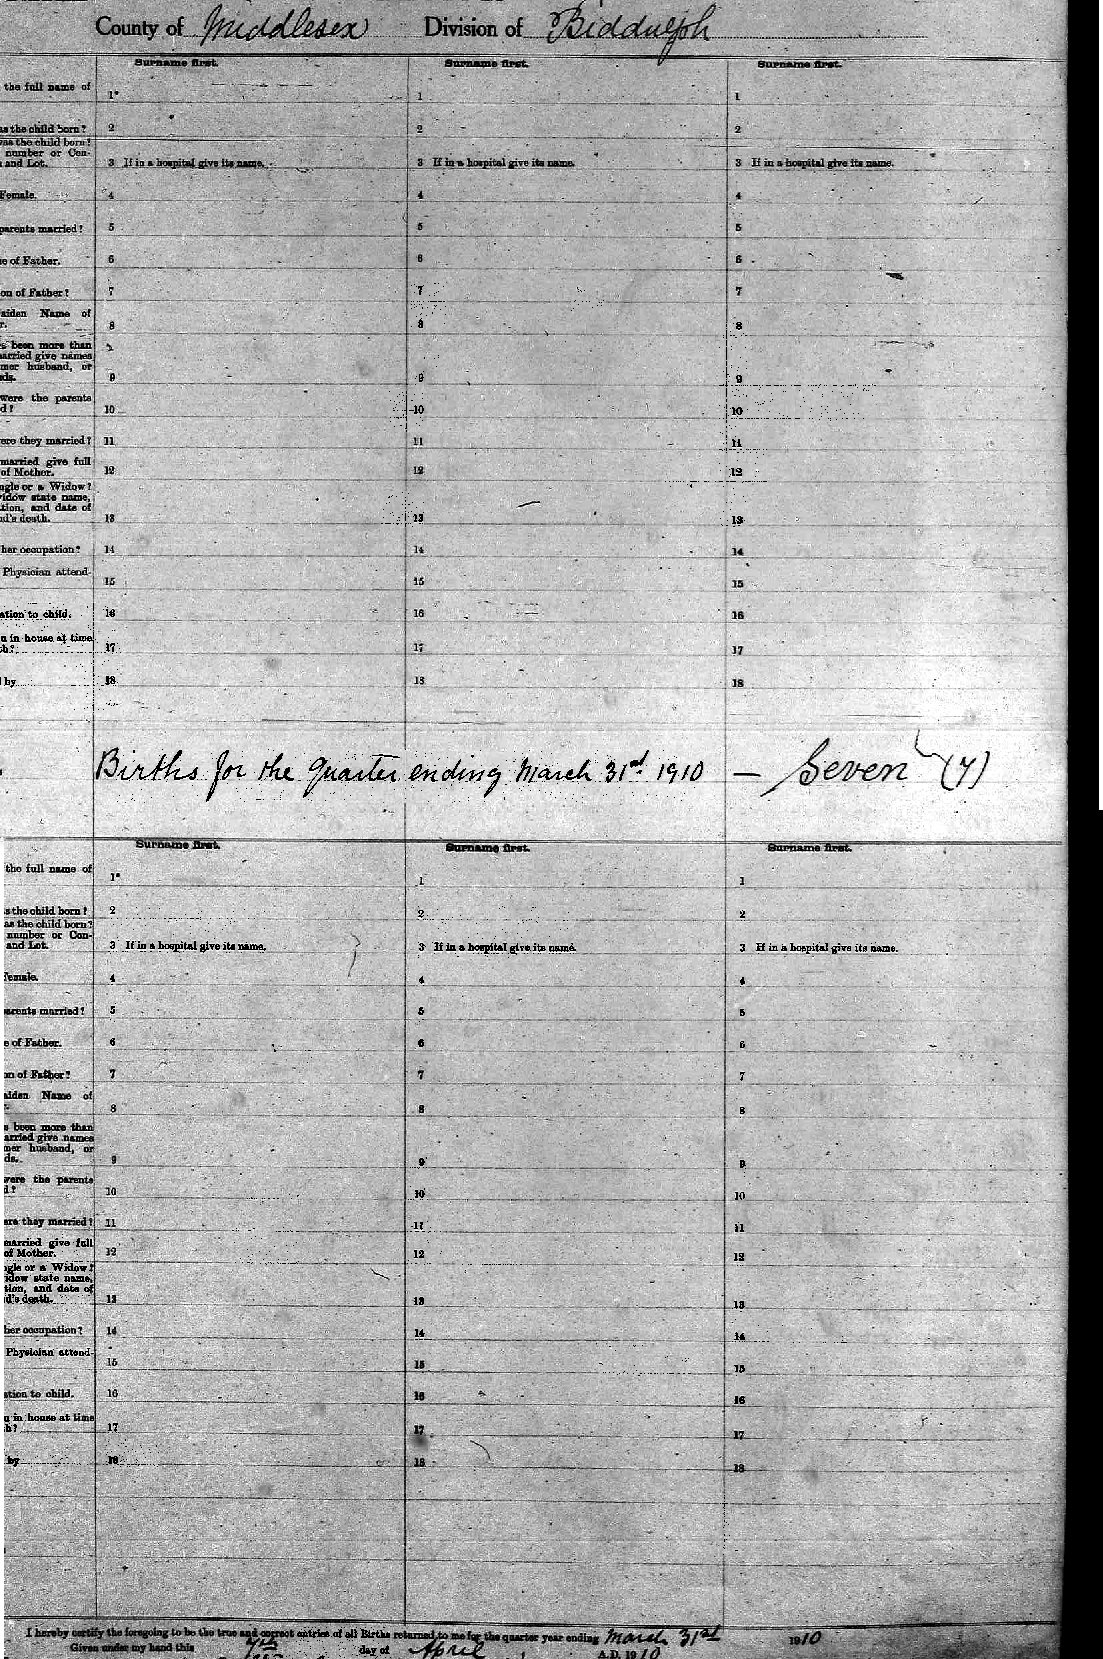 County of Middlesex Division of Biddulph
Surname first. Surname first. Surname first.
the full name of
1 1 1
as the child born? 2 2 2
was the child born?
number or Con-
and Lot. 3 If in a hospital give its name. 3 If in a hospital give its name. 3 If in a hospital give its name.
Female. 4 4 4
parents married? 5 5 5
e of Father. 6 6 6
on of Father? 7 7 7
aiden Name of
r. 8 8 8
s been more than
married give names
mer husband, or
ds. 9 9 9
were the parents
d? 10 10 10
ere they married? 11 11 11
married give full
of Mother. 12 12 12
ngle or a Widow?
widow state name,
tion, and date of
nd's death. 13 13 13
her occupation? 14 14 14
Physician attend-
15 15 15
ation to child. 16 16 16
n in house at time
h? 17 17 17
by 18 18 18
Births for the quarter ending March 31st 1910 — Seven (7)
Surname first. Surname first. Surname first.
the full name of
1 1 1
s the child born? 2 2 2
as the child born?
number or Con-
and Lot. 3 If in a hospital give its name. 3 If in a hospital give its name. 3 If in a hospital give its name.
Female. 4 4 4
parents married? 5 5 5
e of Father. 6 6 6
on of Father? 7 7 7
aiden Name of
8 8 8
s been more than
arried give names
mer husband, or
ds. 9 9 9
were the parents
d? 10 10 10
ere they married? 11 11 11
married give full
of Mother. 12 12 12
ngle or a Widow?
idow state name,
tion, and date of
d's death. 13 13 13
her occupation? 14 14 14
Physician attend-
15 15 15
ation to child. 16 16 16
n in house at time
h? 17 17 17
by 18 18 18
I hereby certify the foregoing to be the true and correct entries of all Births returned to me for the quarter year ending March 31st 1910
Given under my hand this 7th day of April A.D. 1910